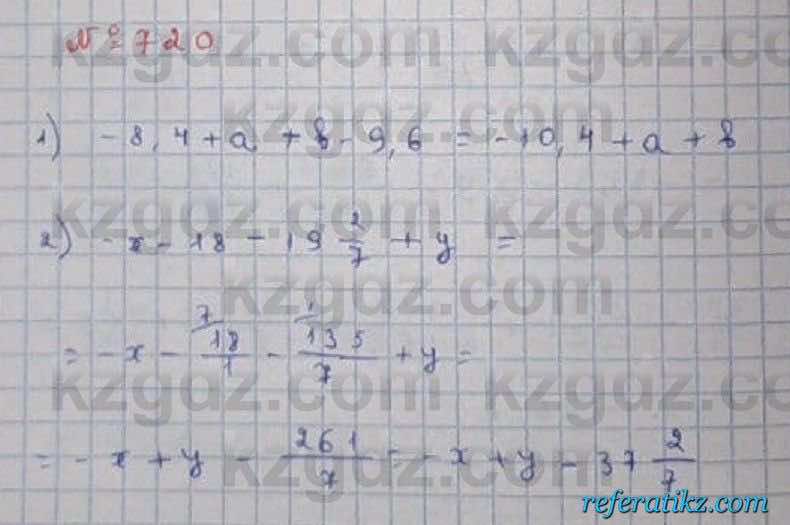 № 720
kzgdz.com kzgdz.com
1) - 8,4 + a + b - 9,6 = - 10,4 + a + b
kzgdz.com kzgdz.com
2) - x - 18 - 19 2/7 + y =
kzgdz.com
= - x - 18/1 ⁷ - 135/7 ¹ + y =
kzgdz.com
= - x + y - 261/7 = - x + y - 37 2/7
kzgdz.com kzgdz.com
referatikz.com